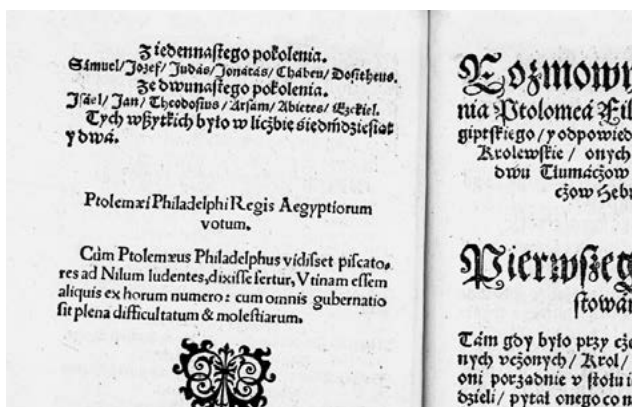 Z iedennastego pokolenia.
Sámuel/ Jozef/ Judás/ Jonátás/ Chábeu/ Dositheus.
Ze dwunastego pokolenia.
Jsáel/ Jan/ Theodosius/ Arsam/ Abietes/ Ezekiel.
Tych wszytkich było w liczbie siedmdziesiat
y dwá.
Ptolemæi Philadelphi Regis Aegyptiorum
votum.
Cùm Ptolemæus Philadelphus vidisset piscato-
res ad Nilum ludentes, dixisse fertur, Vtinam essem
aliquis ex horum numero: cum omnis gubernatio
sit plena difficultatum & molestiarum.
Rozmowy
nia Ptolomeá Fil
giptskiego/ y odpowied
Krolewskie/ onych
dwu Tłumáczow
czow Hebr
Pierwszeg
stowá
Tám gdy było przy cze
nych vczonych/ Krol/
oni porzadnie v stołu i
dzieli/ pytał onego co n